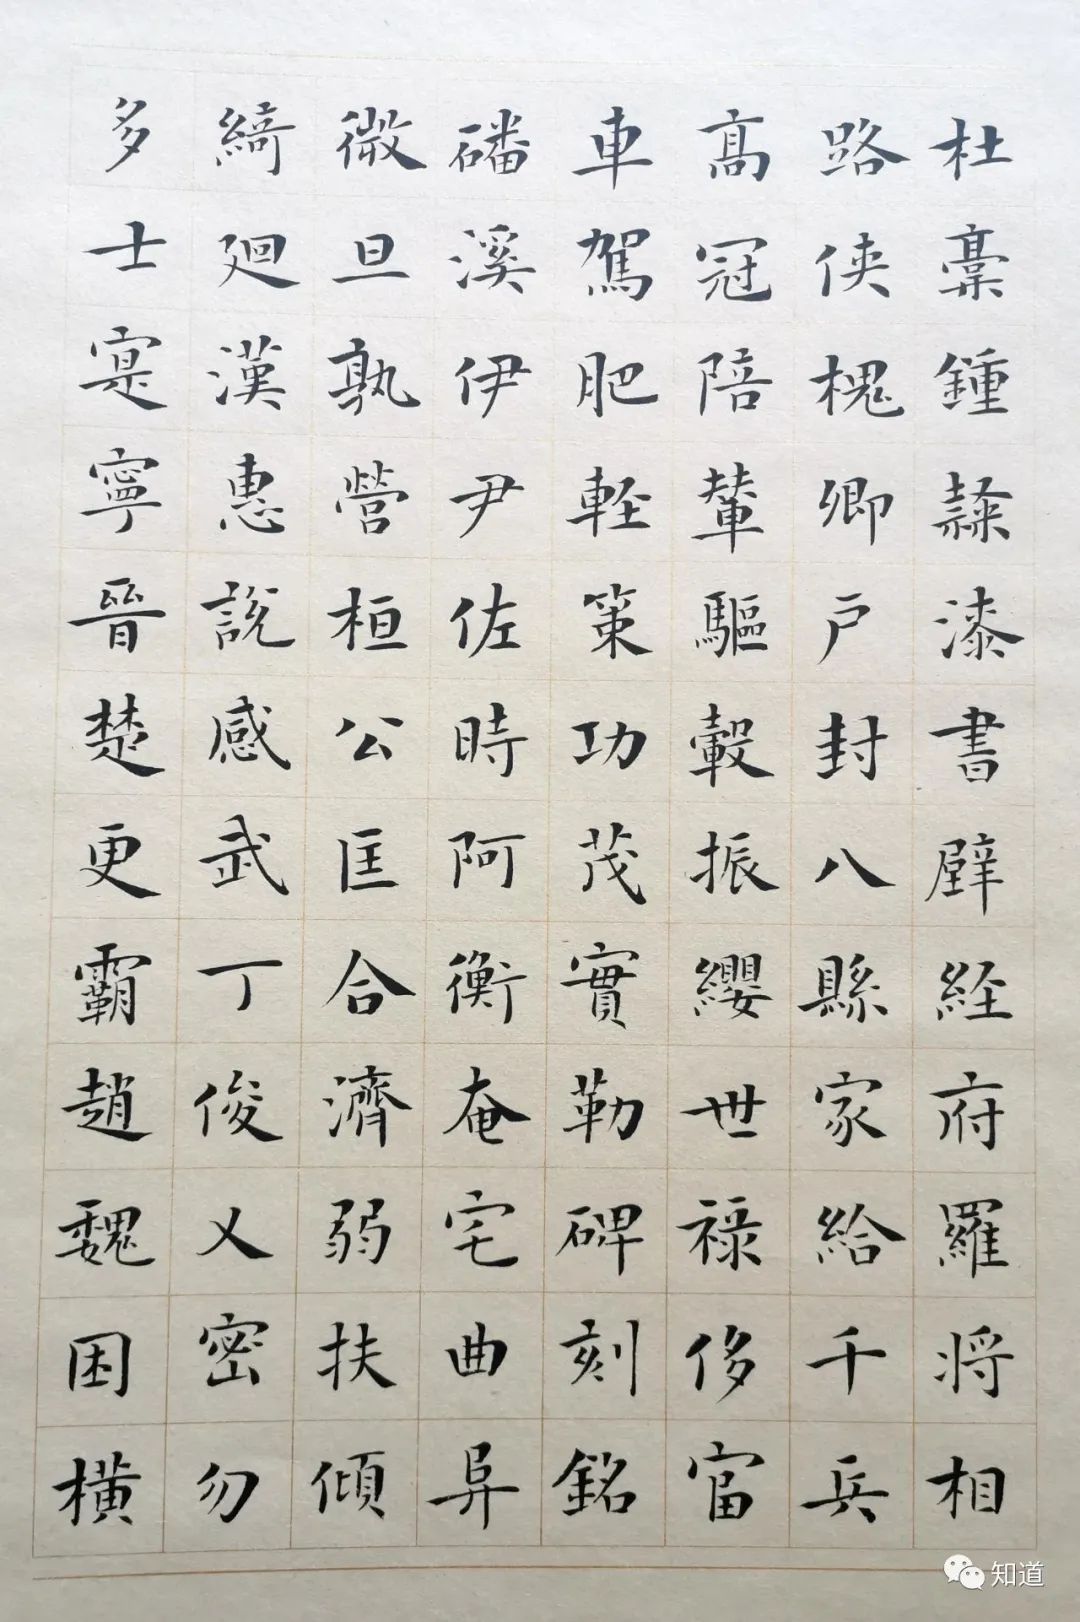 杜稾鍾隸漆書壁経府羅将相
路侠槐卿户封八縣家給千兵
高冠陪輦驅轂振纓世禄侈富
車駕肥軽策功茂實勒碑刻銘
磻溪伊尹佐時阿衡奄宅曲阜
微旦孰營桓公匡合濟弱扶傾
綺廻漢惠說感武丁俊乂密勿
多士寔寧晉楚更霸趙魏困横
知道